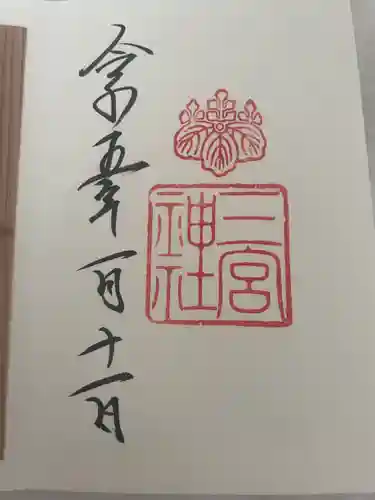 二宮
神社
令和五年一月十一日